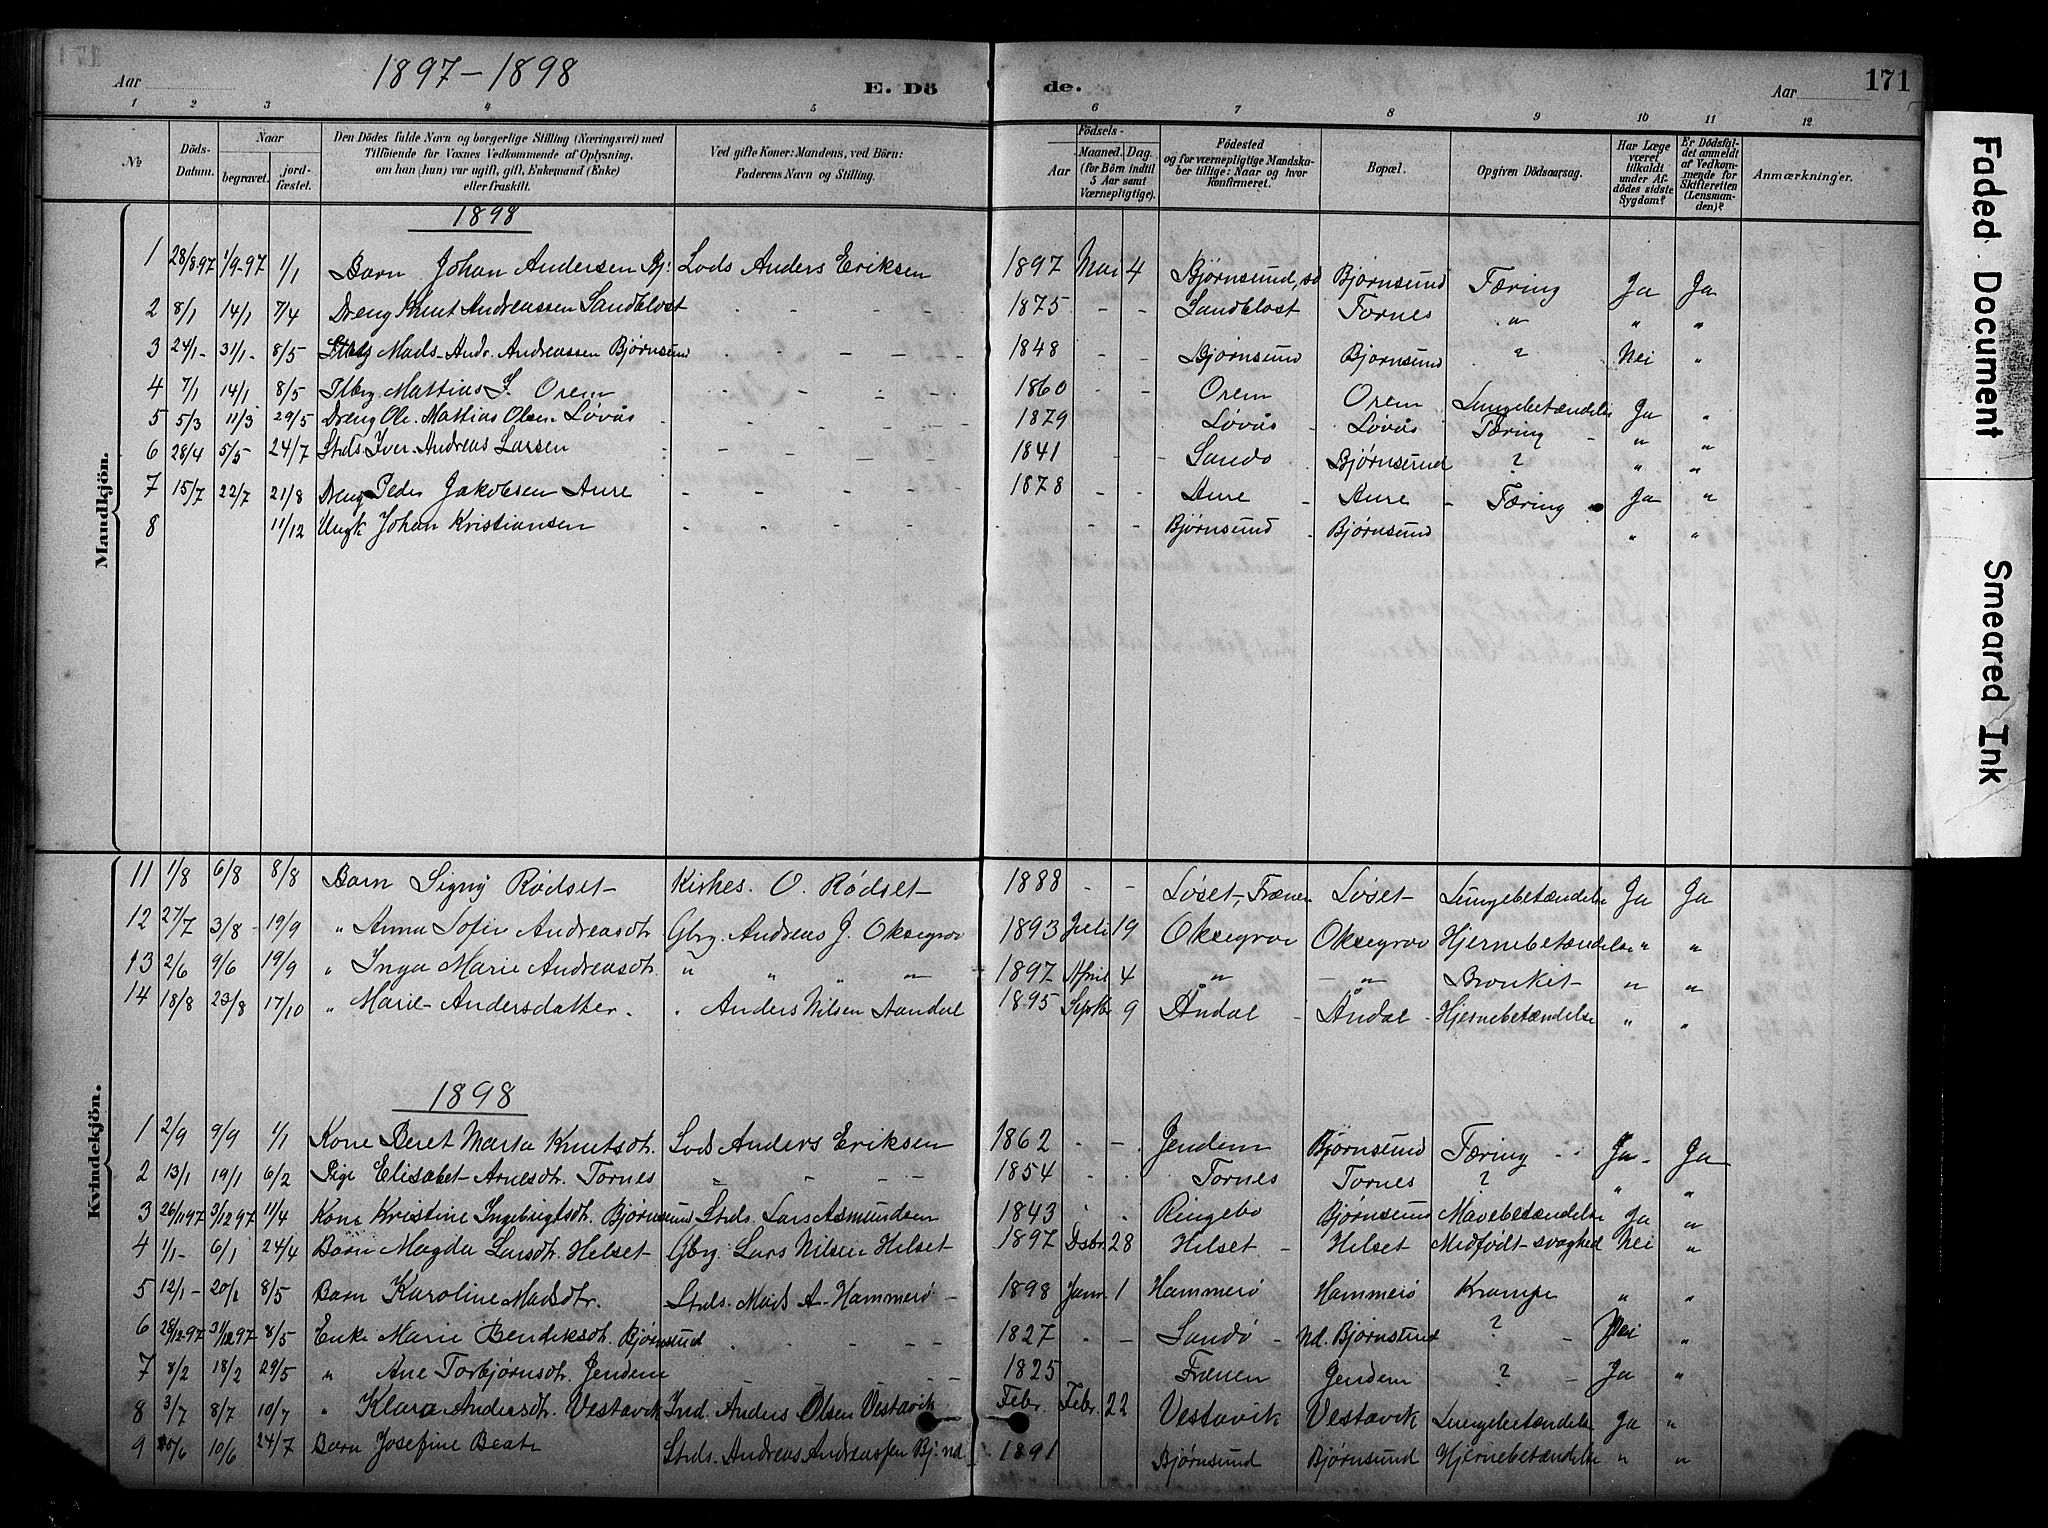 Aar 1897-1898 E. Dö de. Aar 171
1 2 3 4 5 6 7 8 9 10 11 12
№ Döds-Datum. Naar begravet. jord-fæstet. Den Dödes fulde Navn og borgerlige Stilling (Næringsvei) med Tilföiende for Voxnes Vedkommende af Oplysning, om han (hun) var ugift, gift, Enkemand (Enke) eller fraskilt. Ved gifte Koner: Mandens, ved Börn: Faderens Navn og Stilling. Födsels- Aar Maaned. Dag. (for Börn indtil 5 Aar samt Værnepligtige). Födested og for værnepligtige Mandska-ber tillige: Naar og hvor konfirmeret. Bopæl. Opgiven Dödsaarsag. Har Læge været tilkaldt under Af-dödes sidste Sygdom? Er Dödsfal-det anmeldt af Vedkom-mende for Skifteretten (Lensman-den)? Anmærkninger.
Mandkjön.
1898
1 28/8 97 1/9-97 1/1 Barn Johan Andersen Bj: Lods Anders Eriksen 1897 Mai 4 Bjørnsund, Bjørnsund Tæring Ja Ja
2 8/1 14/1 7/4 Dreng Knut Andreassen Sandblost - - - - 1875 - - Sandblost Tornes " " "
3 24/1- 31/1- 8/5 Mads Andr. Andreassen Bjørnsund - - - - 1848 - - Bjørnsund Bjørnsund ? Nei "
4 7/1 14/1 8/5 Mattias J. Orem - - - - 1860 - - Orem Orem Lungebetændelse Ja "
5 5/3 11/3 29/5 Dreng Ole Mattias Olsen Løvås 1879 Løvås Løvås Tæring " "
6 28/4 5/5 24/7 Strds. Iver Andreas Larsen - - - - 1841 - - Sandø Bjørnsund ? " "
7 15/7 22/7 21/8 Dreng Peder Jakobsen Aure - - - - 1878 - - Aure - Aure - Tæring Ja "
8 11/12 Ungk Johan Kristiansen - - - - - - Bjørnsund Bjørnsund " "
Kvindekjön.
11 1/8 6/8 8/8 Barn Signy Rødset Kirkes. O. Rødset 1888 - - Løset, Frænen Løset Lungebetændelse Ja Ja
12 27/7 3/8- 19/9 " Anna Sofie Andreasdtr. Gbrg. Andreas J. Oksegrov 1893 Juli 19 Oksegrov Oksegrov Hjernebetændelse " "
13 2/6 9/6 19/9 " Inga Marie Andreasdtr. " " " " 1897 April 4 " " Bronkit " "
14 18/8 23/8 17/10 " Marie Andersdatter. " Anders Nilsen Aandal 1895 Septbr 9 Åndal - Åndal - Hjernebetændelse " "
1898
1 2/9 9/9 1/1 Kone Beret Marta Knutsdtr. Lods Anders Eriksen 1862 - - Jendem Bjørnsund Tæring Ja - Ja
2 13/1 19/1 6/2 Pige Elisabet Arnesdtr. Tornes - - - - 1854 - - Tornes Tornes ? " "
3 26/11 97 3/12 97 11/4 Kone Kristine Ingebrigtsdtr. Bjørnsund Strds. Lars Asmundsen 1843 Ringebo Bjørnsund Mavebetændelse Ja "
4 1/1- 6/1 24/4 Barn Magda Larsdtr. Helset Gbrg Lars Nilsen Helset 1897 Dsbr. 28 Helset - Helset Medfødt svaghed Nei "
5 12/1- 20/1 8/5 Barn Karoline Madsdtr. Strds. Mads A. Hammerø - 1898 Janr. 1 Hammerø Hammerø Krampe " "
6 28/12 97 31/12 97 8/5 Enke Marie Bendiksdtr. Bjørnsund - - - 1827 - - Sandø - nd. Bjørnsund ? - Nei "
7 8/2 18/2 29/5 " Ane Torbjørnsdtr. Jendem - - 1825 Frænen Jendem ? - Ja "
8 3/7 8/7 10/7 " Klara Andersdtr. Vestavik Ind. Anders Olsen Vestavik Febr. Febr. 22 Vestavik Vestavik Lungebetændelse Ja "
9 10/6 24/7 Barn Josefine Beate Strds. Andreas Andreassen Bj: nd. 1891 Bjørnsund Bjørnsund Hjernebetændelse " "
Faded Document
Smeared Ink